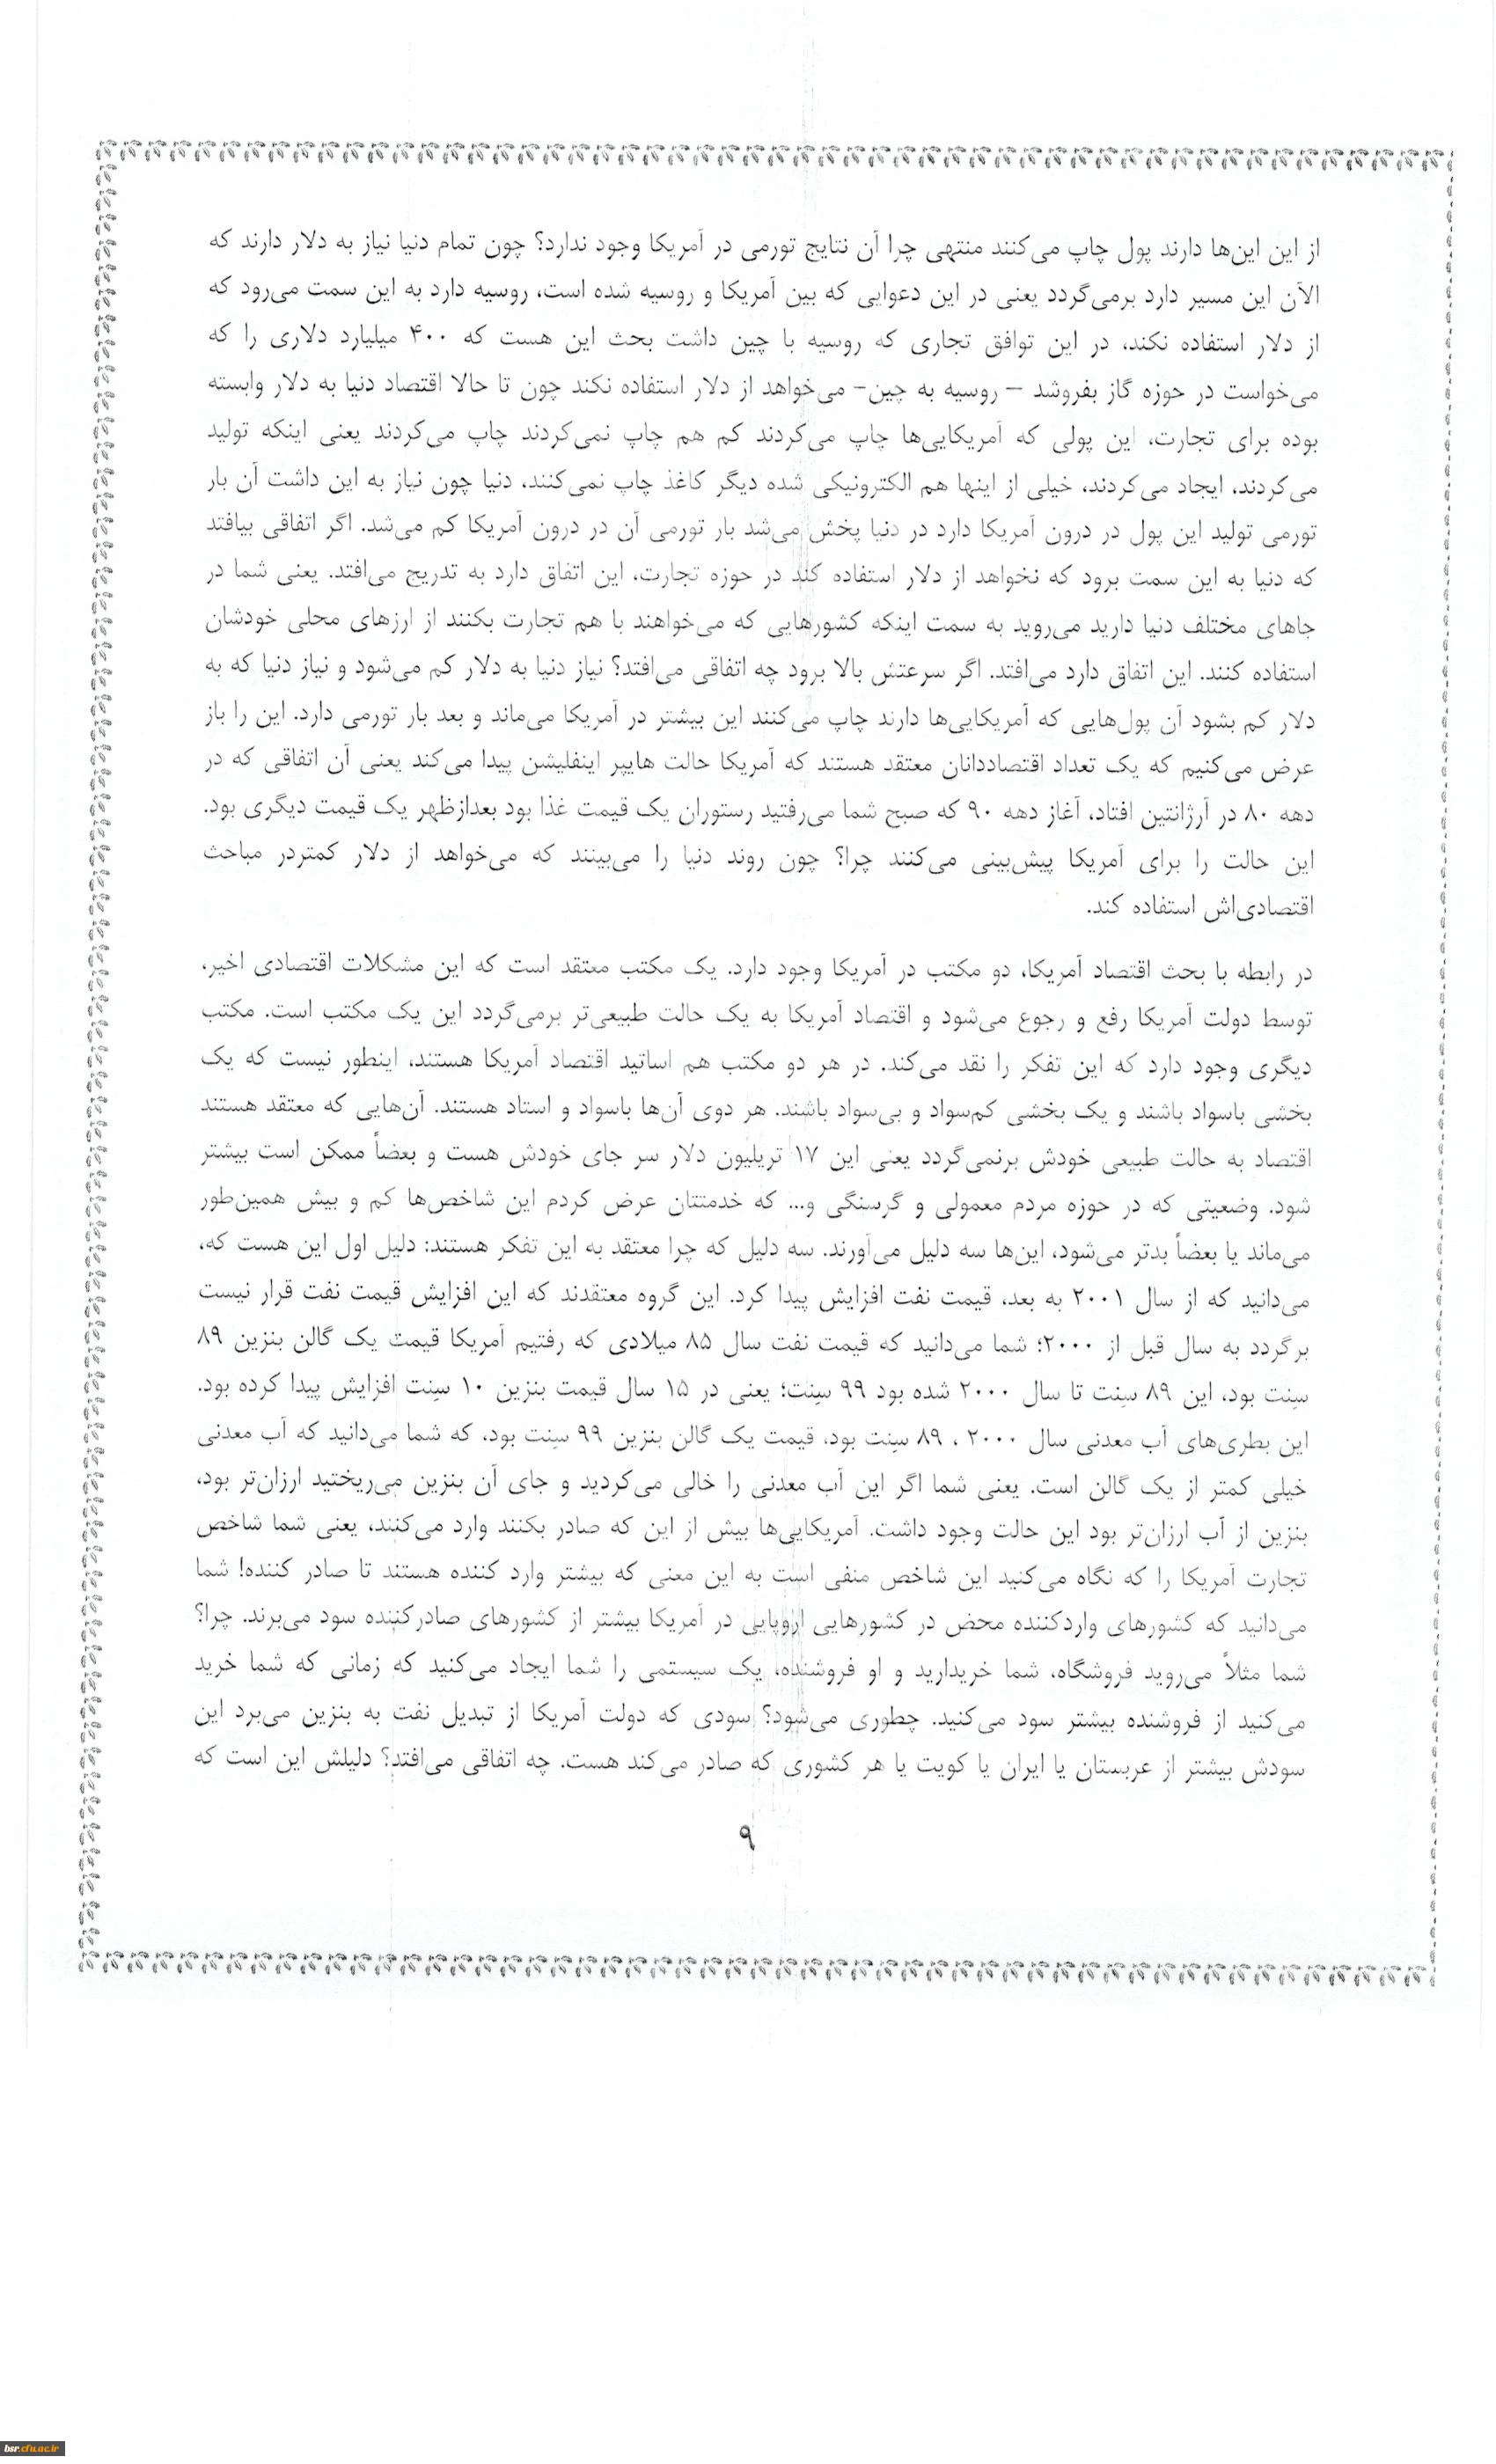 از این این‌ها دارند پول چاپ می‌کنند منتهی چرا آن نتایج تورمی در آمریکا وجود ندارد؟ چون تمام دنیا نیاز به دلار دارند که
الآن این مسیر دارد برمی‌گردد یعنی در این دعوایی که بین آمریکا و روسیه شده است، روسیه دارد به این سمت می‌رود که
از دلار استفاده نکند، در این توافق تجاری که روسیه با چین داشت بحث این هست که ۴۰۰ میلیارد دلاری را که
می‌خواست در حوزه گاز بفروشد – روسیه به چین- می‌خواهد از دلار استفاده نکند چون تا حالا اقتصاد دنیا به دلار وابسته
بوده برای تجارت، این پولی که آمریکایی‌ها چاپ می‌کردند کم هم چاپ نمی‌کردند چاپ می‌کردند یعنی اینکه تولید
می‌کردند، ایجاد می‌کردند، خیلی از اینها هم الکترونیکی شده دیگر کاغذ چاپ نمی‌کنند، دنیا چون نیاز به این داشت آن بار
تورمی تولید این پول در درون آمریکا دارد در دنیا پخش می‌شد بار تورمی آن در درون آمریکا کم می‌شد. اگر اتفاقی بیافتد
که دنیا به این سمت برود که نخواهد از دلار استفاده کند در حوزه تجارت، این اتفاق دارد به تدریج می‌افتد. یعنی شما در
جاهای مختلف دنیا دارید می‌روید به سمت اینکه کشورهایی که می‌خواهند با هم تجارت بکنند از ارزهای محلی خودشان
استفاده کنند. این اتفاق دارد می‌افتد. اگر سرعتش بالا برود چه اتفاقی می‌افتد؟ نیاز دنیا به دلار کم می‌شود و نیاز دنیا که به
دلار کم بشود آن پول‌هایی که آمریکایی‌ها دارند چاپ می‌کنند این بیشتر در آمریکا می‌ماند و بعد بار تورمی دارد. این را باز
عرض می‌کنیم که یک تعداد اقتصاددانان معتقد هستند که آمریکا حالت هایپر اینفلیشن پیدا می‌کند یعنی آن اتفاقی که در
دهه ۸۰ در آرژانتین افتاد، آغاز دهه ۹۰ که صبح شما می‌رفتید رستوران یک قیمت غذا بود بعدازظهر یک قیمت دیگری بود.
این حالت را برای آمریکا پیش‌بینی می‌کنند چرا؟ چون روند دنیا را می‌بینند که می‌خواهد از دلار کمتردر مباحث
اقتصادی‌اش استفاده کند.
در رابطه با بحث اقتصاد آمریکا، دو مکتب در آمریکا وجود دارد. یک مکتب معتقد است که این مشکلات اقتصادی اخیر،
توسط دولت آمریکا رفع و رجوع می‌شود و اقتصاد آمریکا به یک حالت طبیعی‌تر برمی‌گردد این یک مکتب است. مکتب
دیگری وجود دارد که این تفکر را نقد می‌کند. در هر دو مکتب هم اساتید اقتصاد آمریکا هستند، اینطور نیست که یک
بخشی باسواد باشند و یک بخشی کم‌سواد و بی‌سواد باشند. هر دوی آن‌ها باسواد و استاد هستند. آن‌هایی که معتقد هستند
اقتصاد به حالت طبیعی خودش برنمی‌گردد یعنی این ۱۷ تریلیون دلار سر جای خودش هست و بعضاً ممکن است بیشتر
شود. وضعیتی که در حوزه مردم معمولی و گرسنگی و... که خدمتتان عرض کردم این شاخص‌ها کم و بیش همین‌طور
می‌ماند یا بعضاً بدتر می‌شود، این‌ها سه دلیل می‌آورند. سه دلیل که چرا معتقد به این تفکر هستند: دلیل اول این هست که،
می‌دانید که از سال ۲۰۰۱ به بعد، قیمت نفت افزایش پیدا کرد. این گروه معتقدند که این افزایش قیمت نفت قرار نیست
برگردد به سال قبل از ۲۰۰۰؛ شما می‌دانید که قیمت نفت سال ۸۵ میلادی که رفتیم آمریکا قیمت یک گالن بنزین ۸۹
سِنت بود، این ۸۹ سنت تا سال ۲۰۰۰ شده بود ۹۹ سِنت؛ یعنی در ۱۵ سال قیمت بنزین ۱۰ سِنت افزایش پیدا کرده بود.
این بطری‌های آب معدنی سال ۲۰۰۰ ، ۸۹ سِنت بود، قیمت یک گالن بنزین ۹۹ سِنت بود، که شما می‌دانید که آب معدنی
خیلی کمتر از یک گالن است. یعنی شما اگر این آب معدنی را خالی می‌کردید و جای آن بنزین می‌ریختید ارزان‌تر بود،
بنزین از آب ارزان‌تر بود این حالت وجود داشت. آمریکایی‌ها بیش از این که صادر بکنند وارد می‌کنند، یعنی شما شاخص
تجارت آمریکا را که نگاه می‌کنید این شاخص منفی است به این معنی که بیشتر وارد کننده هستند تا صادر کننده! شما
می‌دانید که کشورهای واردکننده محض در کشورهایی اروپایی در آمریکا بیشتر از کشورهای صادرکننده سود می‌برند. چرا؟
شما مثلاً می‌روید فروشگاه، شما خریدارید و او فروشنده، یک سیستمی را شما ایجاد می‌کنید که زمانی که شما خرید
می‌کنید از فروشنده بیشتر سود می‌کنید. چطوری می‌شود؟ سودی که دولت آمریکا از تبدیل نفت به بنزین می‌برد این
سودش بیشتر از عربستان یا ایران یا کویت یا هر کشوری که صادر می‌کند هست. چه اتفاقی می‌افتد؟ دلیلش این است که
۹
bsr.cfu.ac.ir